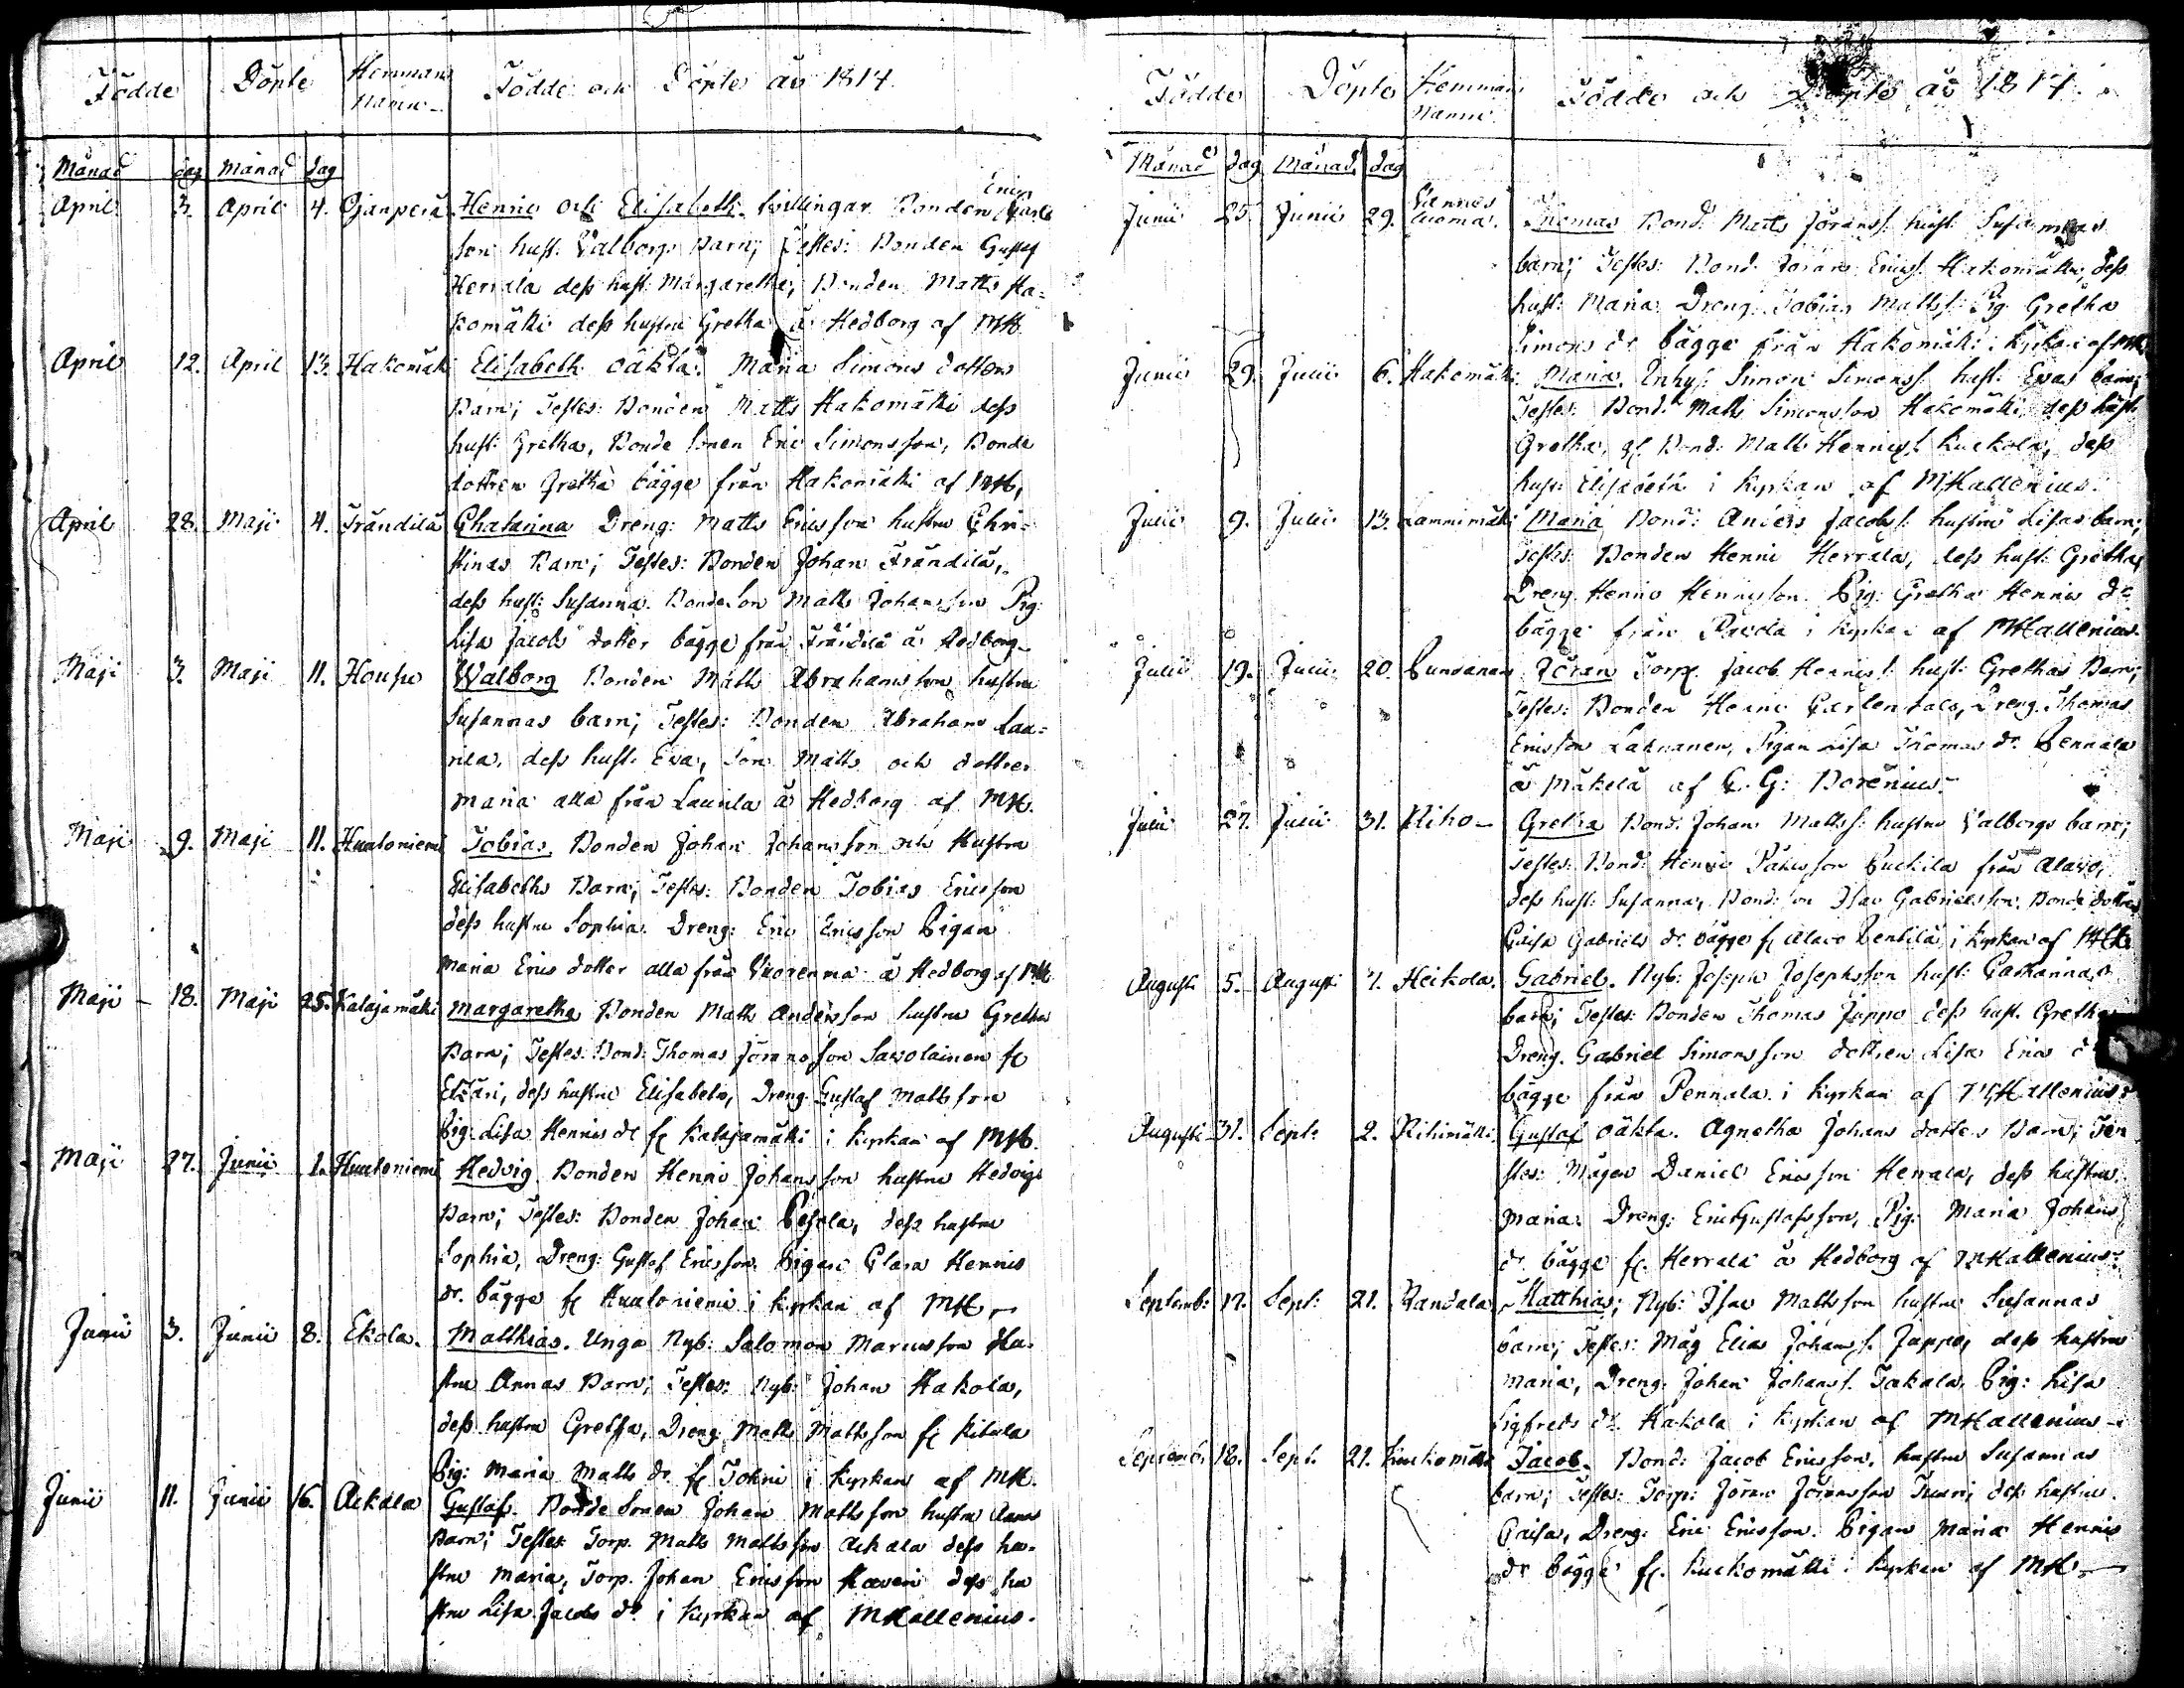 Födde Döpte Hemmans Namn Födde och Döpte år 1817.
Månad dag Månad dag
April 3. April 4. Ojanperä Henric och Elisabeth tvillingar Bonden Erics Carls
son hust: Valborgs Barn; Testes: Bonden Gustaf
Herrala dess hust: Margaretha, Bonden Matts Ha=
komäki dess hustru Gretha å Hedborg af MH.
April 12. April 13. Hakomäki Elisabeth oäkta. Maria Simons dotters
Barn; Testes: Bonden Matts Hakomäki dess
hust: Gretha, Bonde Sonen Eric Simonsson, Bonde
dottren Gretha bägge från Hakomäki af MH,
April 28. Maji 4. Frändilä Chatarina Dreng: Matts Ericsson hustru Chri=
stinas Barn; Testes: Bonden Johan Frändilä,
dess hust: Susanna. BondeSon Matts Johansson Pig:
Lisa Jacobs dotter bägge från Frändilä å Hedborg
Maji 3. Maji 11. Houpu Walborg Bonden Matts Abrahamsson hustru
Susannas barn; Testes: Bonden Abraham Lau=
rila, dess hust: Eva, Son Matts och dottren
Maria alla från Laurila å Hedborg af MH.
Maji 9. Maji 11. Huuloniemi Tobias. Bonden Johan Johansson och Hustru
Elisabeths Barn; Testes: Bonden Tobias Ericsson
dess hustru Sophia. Dreng: Eric Ericsson Pigan
Maria Erics dotter alla från Vuorenma å Hedborg af MH.
Maji 18. Maji 25. Kalajamäki Margaretha Bonden Matts Andersson hustru Gretha
Barn; Testes: Bond: Thomas Jöransson Savolainen fr
Etzäri, dess hustru Elisabeth, Dreng: Gustaf Mattsson
Pig: Lisa Henrics dr fr Kalajamäki i Kyrkan af MH.
Maji 27. Junii 1. Huuloniemi Hedvig. Bonden Henric Johansson hustru Hedvigs
Barn; Testes: Bonden Johan Pesola, dess hustru
Sophia, Dreng: Gustaf Ericsson. Pigan Clara Henrics
dr. bägge fr Huuloniemi i Kyrkan af MH
Junii 3. Junii 8. Ekola. Matthias. Unga Nyb: Salomon Marcusson Hu=
stru Annas Barn; Testes: Nyb: Johan Hakola,
dess hustru Gretha, Dreng: Matts Mattsson fr Ritula
Pig: Maria Matts dr. fr Tohni i Kyrkan af MH.
Junii 11. Junii 16. Ackala Gustaf. Bonde Sonen Johan Mattsson hustru Annas
Barn; Testes: Torp. Matts Mattsson Ackala dess hu=
stru Maria, Torp. Johan Ericsson dess hu
stru Lisa Jacobs dr i Kyrkan af MHallenius.
Födde Döpte Hemmans Namn Födde och Döpte år 1817.
Månad dag Månad dag
Junii 25. Junii 29. Thomas Bond: Matts Jöranss: hust: Susannas
barn; Testes: Bond: Jöran Ericss: Hakomäki, dess
hust: Maria. Dreng: Tobias Mattss: Pig: Gretha
Simons dr bägge från Hakomäki i Kyrkan af MH.
Junii 29. Julii 6. Hakomäki Maria. Inhys: Simon Simonss: hust: Evas barn;
Testes: Bond: Matts Simonsson Hakomäki, dess hust:
Gretha, Bond: Matts Henricss: Kuckola, dess
hust: Elisabeth i Kyrkan af MHallenius.
Julii 9. Julii 13. Maria Bond: Anders Jacobss: hustru Lisas barn;
Testes: Bonden Henric Herrala, dess hust: Gretha,
Dreng Henric Henricsson. Pig: Gretha Henrics dr
bägge från i Kyrkan af MHallenius.
Julii 19. Julii 20. Jöran Torp: Jacob Henricss: hust: Grethas Barn;
Testes: Bonden Henric , Dreng: Thomas
Ericsson , Pigan Lisa Thomas dr. Pennala
å Mäkelä af C. G: Borenius.
Julii 27. Julii 31. Riho Gretha Bond: Johan Mattss: hustru Valborgs barn;
Testes: Bond: Henric från Alavo,
dess hust: Susanna, Bond: Son Isac Gabrielsson. Bonde dottren
Caisa Gabriels dr. bägge fr Alavo Pentilä i Kyrkan af MH.
Augusti 5. Augusti 7. Heikola. Gabriel. Nyb: Joseph Josephsson hust: Catharinas
barn; Testes: Bonden Thomas Juppo dess hust: Gretha
Dreng: Gabriel Simonsson dottren Lisa Erics
bägge från Pennala i Kyrkan af MHallenius.
Augusti 31. Sept: 2. Rihimäki Gustaf oäkta. Agnetha Johans dotters Barn; Te=
stes: Mågen Daniel Ericsson Herrala, dess hustru
Maria. Dreng: Eric Gustafsson, Pig: Maria Johans
dr. bägge fr. Herrala å Hedborg af MHallenius.
Septemb: 17. Sept: 21. Randala Matthias; Nyb: Isac Mattsson hustru Susannas
barn; Testes: Måg Elias Johanss. Juppo, dess hustru
Maria, Dreng: Johan Johanss. Takala, Pig: Lisa
Sigfreds dr. Hakola i Kyrkan af MHallenius
Septemb: 18. Sept: 21. Kuckomäki Jacob. Bond: Jacob Ericsson, hustru Susannas
barn; Testes: Torp: Jöran Jöransson Tuuri, dess hustru
Caisa, Dreng: Eric Ericsson. Pigan Maria Henrics
dr bägge fr. Kuckomäki i Kyrkan af MH